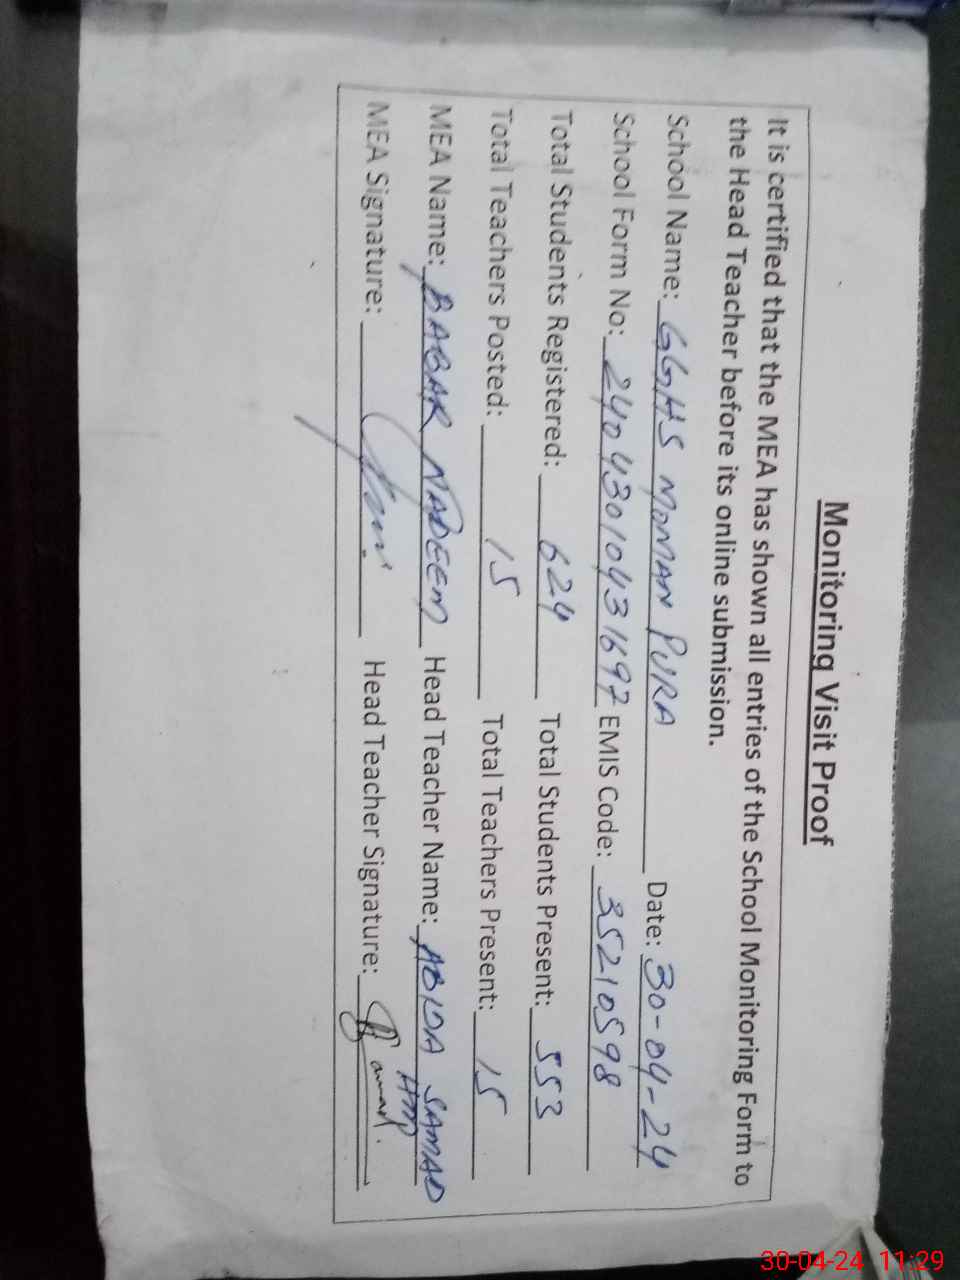 Monitoring Visit Proof
It is certified that the MEA has shown all entries of the School Monitoring Form to
the Head Teacher before its online submission.
School Name: GGHS MOMAN PURA Date: 30-04-24
School Form No: 24043010431697 EMIS Code: 35210598
Total Students Registered: 624 Total Students Present: 553
Total Teachers Posted: 15 Total Teachers Present: 15
MEA Name: BABAR NADEEM Head Teacher Name: ABIDA SAMAD
MEA Signature: Head Teacher Signature:
30-04-24 11:29